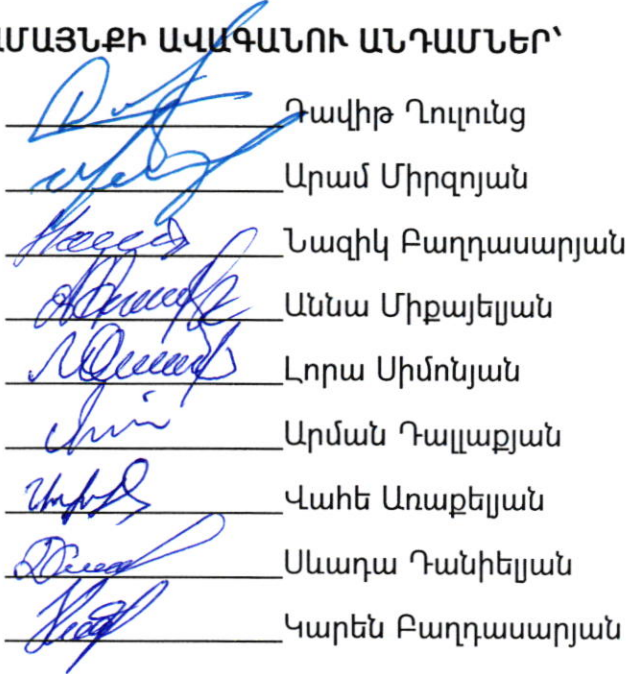 ԱՄԱՅՆՔԻ ԱՎԱԳԱՆՈՒ ԱՆԴԱՄՆԵՐ՝
Դավիթ Ղուլունց
Արամ Միրզոյան
Նազիկ Բաղդասարյան
Աննա Միքայելյան
Լորա Սիմոնյան
Արման Դալլաքյան
Վահե Առաքելյան
Սևադա Դանիելյան
Կարեն Բաղդասարյան